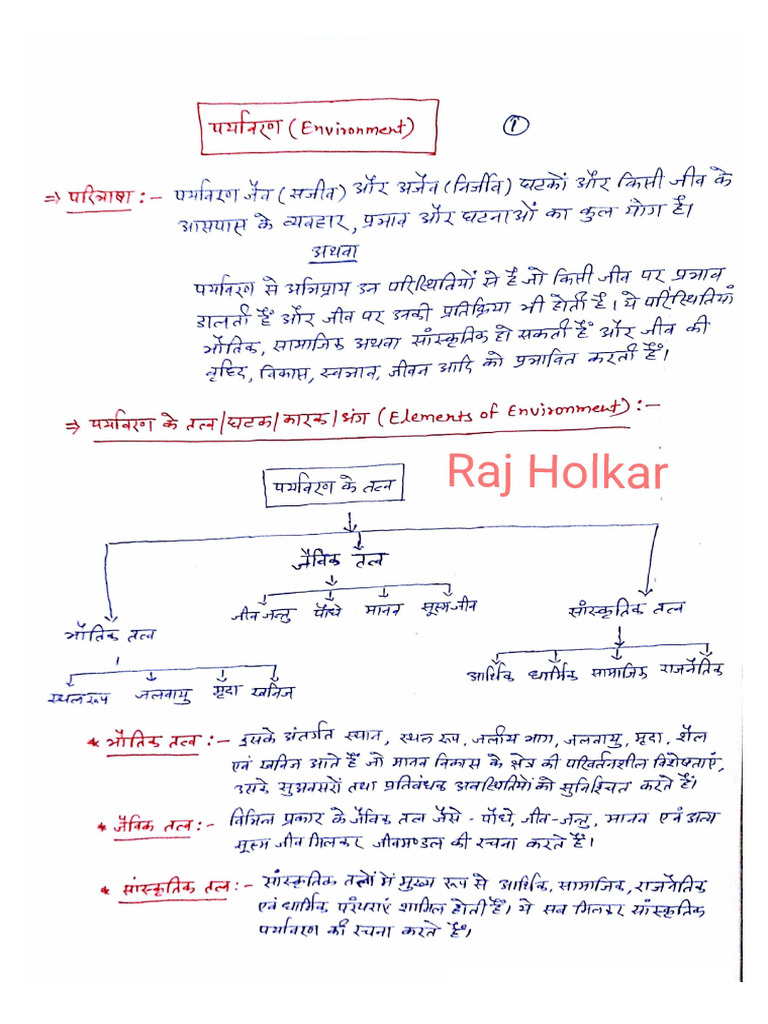 पर्यावरण (Environment)
1
⇒ परिभाषा :- पर्यावरण जैव (सजीव) और अजैव (निर्जीव) घटकों और किसी जीव के
आसपास के व्यवहार, प्रभाव और घटनाओं का कुल योग है।
अथवा
पर्यावरण से अभिप्राय उन परिस्थितियों से है जो किसी जीव पर प्रभाव
डालती हैं और जीव पर उनकी प्रतिक्रिया भी होती है। ये परिस्थितियां
भौतिक, सामाजिक अथवा सांस्कृतिक हो सकती हैं और जीव की
वृद्धि, विकास, स्वभाव, जीवन आदि को प्रभावित करती हैं।
⇒ पर्यावरण के तत्व/घटक/कारक/अंग (Elements of Environment) :-
Raj Holkar
पर्यावरण के तत्व
जैविक तत्व
जीव जन्तु पौधे मानव सूक्ष्म जीव
सांस्कृतिक तत्व
भौतिक तत्व
आर्थिक धार्मिक सामाजिक राजनैतिक
स्थलरूप जलवायु मृदा खनिज
* भौतिक तत्व :- इसके अंतर्गत स्थान, स्थल रूप, जलीय भाग, जलवायु, मृदा, शैल
एवं खनिज आते हैं जो मानव विकास के क्षेत्र की परिवर्तनशील विशेषताएं,
उसके सुअवसरों तथा प्रतिबंधक अवस्थितियों को सुनिश्चित करते हैं।
* जैविक तत्व :- विभिन्न प्रकार के जैविक तत्व जैसे - पौधे, जीव-जन्तु, मानव एवं अन्य
सूक्ष्म जीव मिलकर जीवमण्डल की रचना करते हैं।
* सांस्कृतिक तत्व :- सांस्कृतिक तत्वों में मुख्य रूप से आर्थिक, सामाजिक, राजनैतिक
एवं धार्मिक परंपराएं शामिल होती हैं। ये सब मिलकर सांस्कृतिक
पर्यावरण की रचना करते हैं।